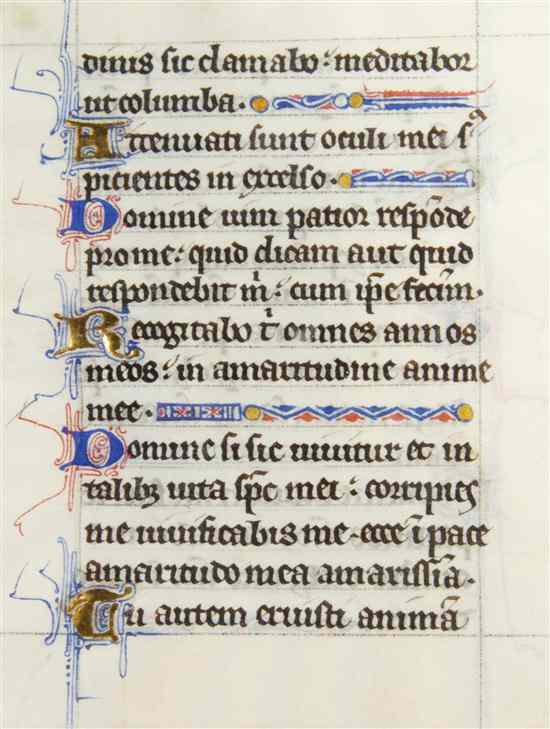 dinis sic clamabo: meditabor
ut columba.
Attenuati sunt oculi mei sꝰ
picientes in excelso.
Domine vim patior respōde
pro me: quid dicam aut quid
respondebit m̍: cum ip̄e fecim̄.
Recogitabo t̍ omnes annos
meos: in amaritudine anime
mee.
Domine si sic vivitur et in
talibꝫ vita sp̄c mei: corripies
me vivificabis me. ecce ī pace
amaritudo mea amarissīa.
Tu autem eruisti animā